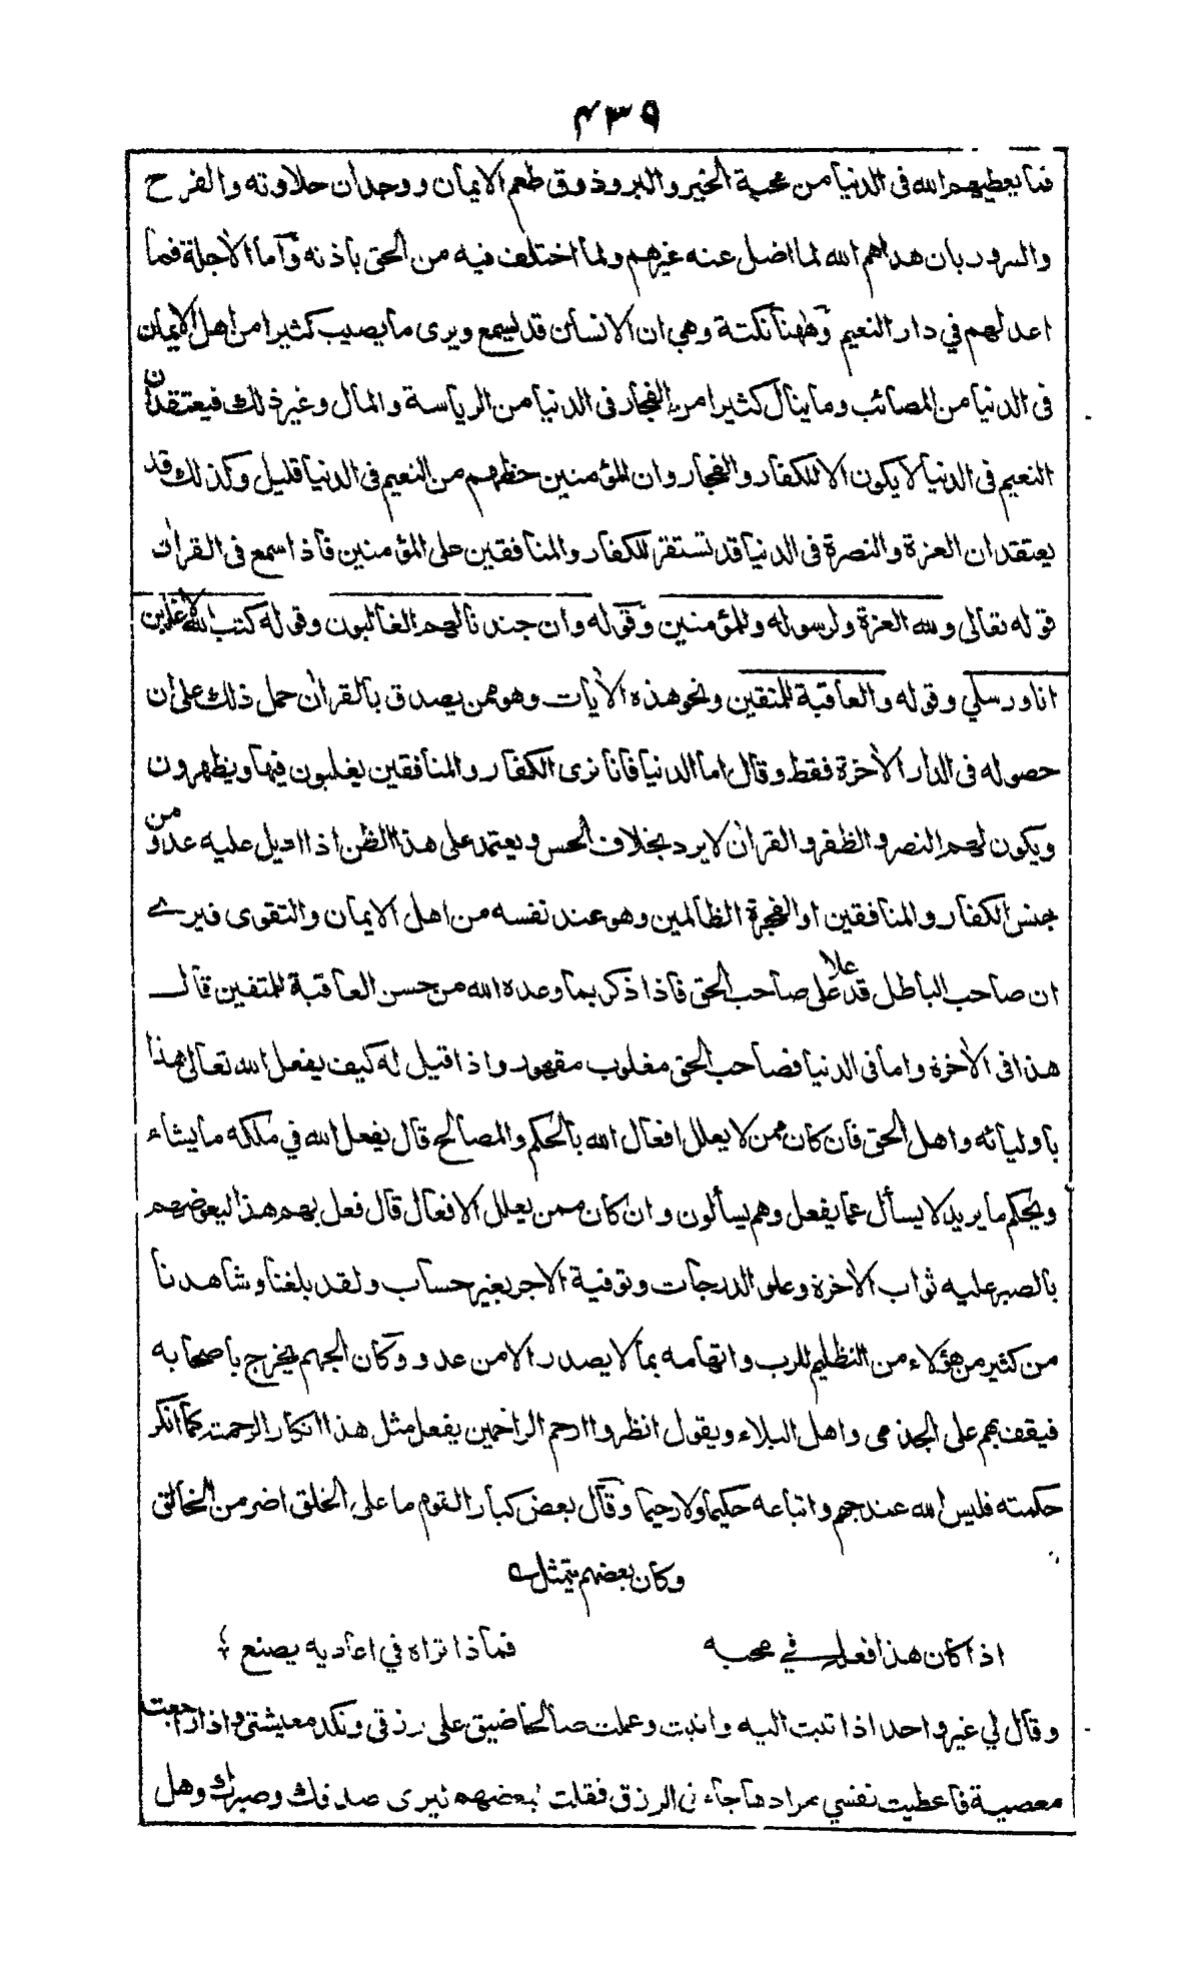 ٤٣٩
فما يعطيهم الله فى الدنيا من محبة الخير والبر وذوق طعم الايمان ووجدان حلاوته والفرح
والسرور بان هداهم الله لما اضل عنه غيرهم ولما اختلف فيه من الحق باذنه وآما الآجلة فما
اعد لهم في دار النعيم وههنا نكتة وهي ان الانسان قد يسمع ويرى ما يصيب كثيرا من اهل الايمان
فى الدنيا من المصائب وما ينال كثيرا من الفجار فى الدنيا من الرياسة والمال وغير ذلك فيعتقد ان
النعيم فى الدنيا لا يكون الا للكفار والفجار وان المؤمنين حظهم من النعيم فى الدنيا قليل وكذلك قد
يعتقد ان العزة والنصرة فى الدنيا قد تستقر للكفار والمنافقين على المؤمنين فاذا سمع فى القرآن
قوله تعالى ولله العزة ولرسوله وللمؤمنين وقوله وان جندنا لهم الغالبون وقوله كتب الله لاغلبن
انا ورسلي وقوله والعاقبة للمتقين ونحو هذه الآيات وهو ممن يصدق بالقرآن حمل ذلك على ان
حصوله فى الدار الآخرة فقط وقال اما الدنيا فانا نرى الكفار والمنافقين يغلبون فيها ويظهرون
ويكون لهم النصر والظفر والقرآن لا يرد بخلاف الحس ويعتمد على هذا الظن اذا اديل عليه عدو من
جنس الكفار والمنافقين او الفجرة الظالمين وهو عند نفسه من اهل الايمان والتقوى فيرے
ان صاحب الباطل قد علا على صاحب الحق فاذا ذكر بما وعده الله من حسن العاقبة للمتقين قال
هذا فى الآخرة واما فى الدنيا فصاحب الحق مغلوب مقهور واذا قيل له كيف يفعل الله تعالى هذا
باوليائه واهل الحق فان كان ممن لا يعلل افعال الله بالحكم والمصالح قال يفعل الله في ملكه ما يشاء
ويحكم ما يريد لا يسأل عما يفعل وهم يسألون وان كان ممن يعلل الافعال قال فعل بهم هذا ليعوضهم
بالصبر عليه ثواب الآخرة وعلو الدرجات وتوفية الاجر بغير حساب ولقد بلغنا وشاهدنا
من كثير من هؤلاء من التظليم للرب واتهامه بما لا يصدر الا من عدو وكان الجهم يخرج باصحابه
فيقف بهم على الجذمى واهل البلاء ويقول انظروا ارحم الراحمين يفعل مثل هذا انكار الرحمته كما انكر
حكمته فليس الله عند جهم واتباعه حكيما ولا رحيما وقال بعض كبار القوم ما على الخلق اضر من الخالق
وكان بعضهم يتمثل ے
اذا كان هذا فعله في محبه فماذا تراه في اعاديه يصنع
وقال لي غير واحد اذا تبت اليه وانبت وعملت صالحا ضيق على رزقي ونكد معيشتى واذا راجعت
معصية فاعطيت نفسي مرادها جاءنى الرزق فقلت لبعضهم ليرى صدقك وصبرك وهل